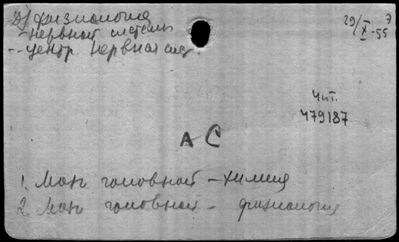 Д/ физиология
29/X-55 7
- нервной системы
-- центр. нервная
Чит.
479187
А С
1. Мозг головной - химия
2. Мозг головной - физиология